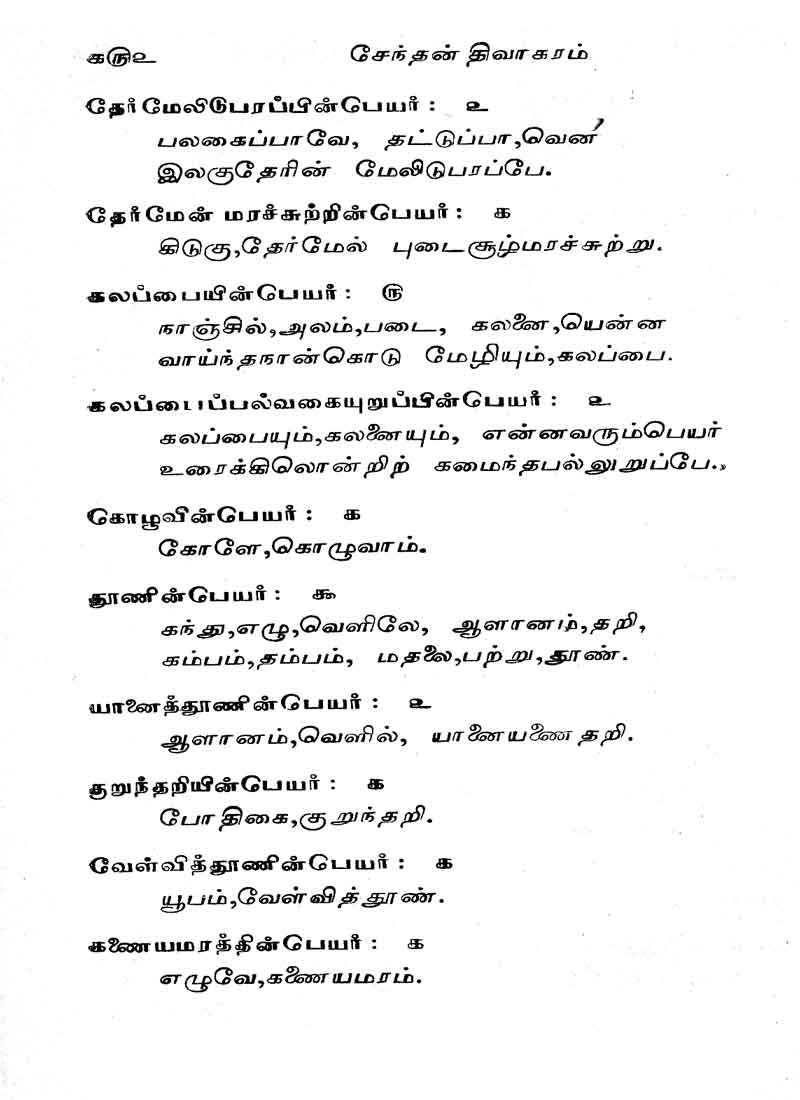 க௫உ சேந்தன் திவாகரம்
தேர்மேலிடுபரப்பின்பெயர் : உ
பலகைப்பாவே, தட்டுப்பா,வென்
இலகுதேரின் மேலிடுபரப்பே.
தேர்மேன் மரச்சுற்றின்பெயர் : க
கிடுகு,தேர்மேல் புடைசூழ்மரச்சுற்று.
கலப்பையின்பெயர் : ௫
நாஞ்சில்,அலம்,படை, கலனை,யென்ன
வாய்ந்தநான்கொடு மேழியும்,கலப்பை.
கலப்பைப்பல்வகையுறுப்பின்பெயர் : உ
கலப்பையும்,கலனையும், என்னவரும்பெயர்
உரைக்கிலொன்றிற் கமைந்தபல்லுறுப்பே.
கொழுவின்பெயர் : க
கோளே,கொழுவாம்.
தூணின்பெயர் : ௯
கந்து,எழு,வெளிலே, ஆளானம்,தறி,
கம்பம்,தம்பம், மதலை,பற்று,தூண்.
யானைத்தூணின்பெயர் : உ
ஆளானம்,வெளில், யானையணைதறி.
குறுந்தறியின்பெயர் : க
போதிகை,குறுந்தறி.
வேள்வித்தூணின்பெயர் : க
யூபம்,வேள்வித்தூண்.
கணையமரத்தின்பெயர் : க
எழுவே,கணையமரம்.